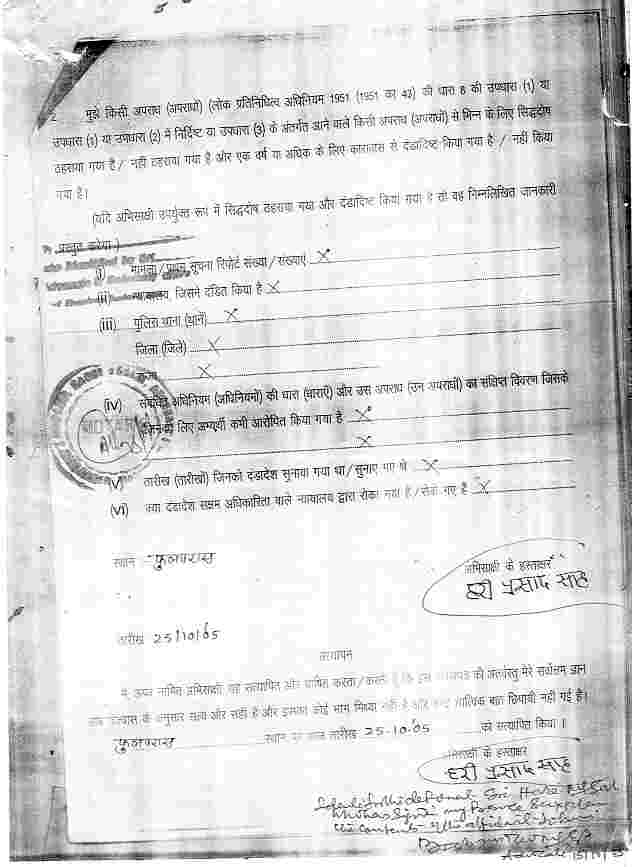 2. मुझे किसी अपराध (अपराधों) (लोक प्रतिनिधित्व अधिनियम 1951 (1951 का 43) की धारा 8 की उपधारा (1) या
उपधारा (1) या उपधारा (2) में निर्दिष्ट या उपधारा (3) के अंतर्गत आने वाले किसी अपराध (अपराधों) से भिन्न के लिए सिद्धदोष
ठहराया गया है / नहीं ठहराया गया है और एक वर्ष या अधिक के लिए कारावास से दंडादिष्ट किया गया है / नहीं किया
गया है।
(यदि अभिसाक्षी उपर्युक्त रूप में सिद्धदोष ठहराया गया और दंडादिष्ट किया गया है तो वह निम्नलिखित जानकारी
प्रस्तुत करेगा )
(i) मामला / प्रथम सूचना रिपोर्ट संख्या / संख्याएं X
(ii) न्यायालय, जिसने दंडित किया है X
(iii) पुलिस थाना (थानें) X
जिला (जिले) X
X
(iv) संबंधित अधिनियम (अधिनियमों) की धारा (धाराएं) और उस अपराध (उन अपराधों) का संक्षिप्त विवरण जिसके
लिए अभ्यर्थी कभी आरोपित किया गया है X
X
(v) तारीख (तारीखों) जिनको दंडादेश सुनाया गया था / सुनाए गए थे X
(vi) क्या दंडादेश सक्षम अधिकारिता वाले न्यायालय द्वारा रोका गया है / रोके गए है X
स्थान फुलपरास
अभिसाक्षी के हस्ताक्षर
हरी प्रसाद साह
तारीख 25/10/05
सत्यापन
मैं ऊपर नामित अभिसाक्षी यह सत्यापित और घोषित करता / करती हूँ कि इस की अंतर्वस्तु मेरे सर्वोत्तम ज्ञान
और विश्वास के अनुसार सत्य और सही है और इसका कोई भाग मिथ्या नहीं है और तात्विक बात छिपायी नहीं गई है।
फुलपरास स्थान पर आज तारीख 25.10.05 को सत्यापित किया ।
अभिसाक्षी के हस्ताक्षर
हरी प्रसाद साह
Sri Hari
who has in my
the contents